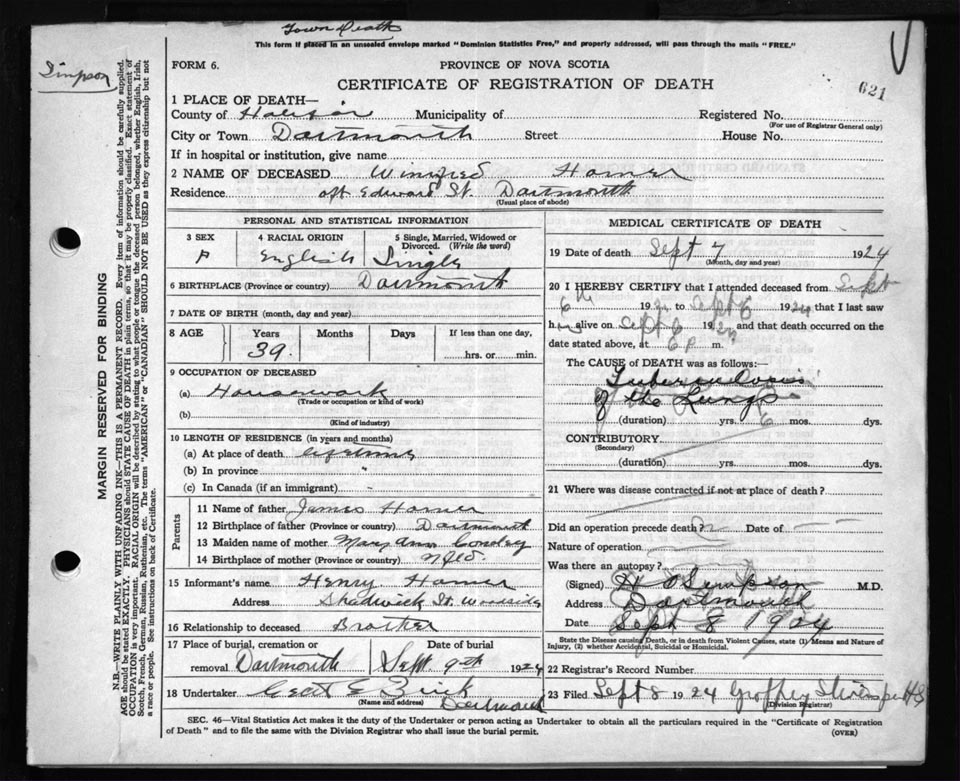 Town Death
This form if placed in an unsealed envelope marked "Dominion Statistics Free," and properly addressed, will pass through the mails "FREE."
Simpson
FORM 6.
PROVINCE OF NOVA SCOTIA
CERTIFICATE OF REGISTRATION OF DEATH
621
1 PLACE OF DEATH—
County of Halifax Municipality of Registered No.
(For use of Registrar General only)
City or Town Dartmouth Street House No.
If in hospital or institution, give name
2 NAME OF DECEASED Winifred Homer
Residence off Edward St. Dartmouth
(Usual place of abode)
PERSONAL AND STATISTICAL INFORMATION
3 SEX 4 RACIAL ORIGIN 5 Single, Married, Widowed or Divorced. (Write the word)
F English Single
6 BIRTHPLACE (Province or country) Dartmouth
7 DATE OF BIRTH (month, day and year)
8 AGE Years Months Days If less than one day,
39. hrs. or min.
9 OCCUPATION OF DECEASED
(a) Housework
(Trade or occupation or kind of work)
(b)
(Kind of industry)
10 LENGTH OF RESIDENCE (in years and months)
(a) At place of death lifetime
(b) In province "
(c) In Canada (if an immigrant)
Parents
11 Name of father James Homer
12 Birthplace of father (Province or country) Dartmouth
13 Maiden name of mother Mary Ann
14 Birthplace of mother (Province or country) Nfld.
15 Informant's name Henry Homer
Address St. Woodside
16 Relationship to deceased Brother
17 Place of burial, cremation or removal Dartmouth Date of burial Sept. 9th 1924
18 Undertaker
(Name and address) Dartmouth
MEDICAL CERTIFICATE OF DEATH
19 Date of death Sept 7 1924
(Month, day and year)
20 I HEREBY CERTIFY that I attended deceased from Sept
6th 192 to Sept 6 1924 that I last saw
h alive on Sept 6 192 and that death occurred on
date stated above, at 6 P m.
The CAUSE of DEATH was as follows:
Tuberculosis
of the Lungs
(duration) yrs. 6 mos. dys.
CONTRIBUTORY
(Secondary)
(duration) yrs. mos. dys.
21 Where was disease contracted if not at place of death?
Did an operation precede death? Date of
Nature of operation
Was there an autopsy?
(Signed) Simpson M.D.
Address Dartmouth
Date Sept 8 1924
State the Disease causing Death, or in death from Violent Causes, state (1) Means and Nature of Injury, (2) whether Accidental, Suicidal or Homicidal.
22 Registrar's Record Number
23 Filed Sept 8 1924
(Division Registrar)
SEC. 46—Vital Statistics Act makes it the duty of the Undertaker or person acting as Undertaker to obtain all the particulars required in the "Certificate of Registration
of Death" and to file the same with the Division Registrar who shall issue the burial permit.
(OVER)
MARGIN RESERVED FOR BINDING
N.B.—WRITE PLAINLY WITH UNFADING INK—THIS IS A PERMANENT RECORD. Every item of information should be carefully supplied.
AGE should be stated EXACTLY. PHYSICIANS should STATE CAUSE OF DEATH in plain terms, so that it may be properly classified. Exact statement of
OCCUPATION is very important. RACIAL ORIGIN will be described by stating to what people or tongue the deceased person belonged, whether English, Irish,
Scotch, French, German, Russian, Ruthenian, etc. The terms "AMERICAN" or "CANADIAN" SHOULD NOT BE USED as they express citizenship but not
a race or people. See instructions on back of Certificate.